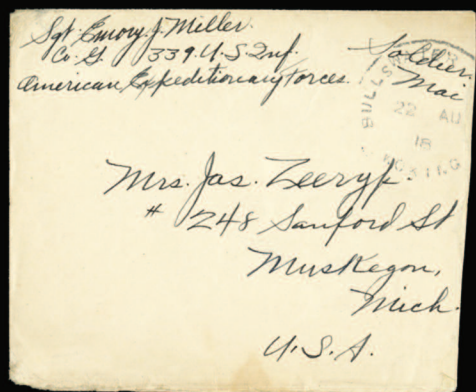 Sgt. Emory J. Miller.
Co. G. 339. U.S. Inf.
American Expeditionary Forces.
Soldiers
Mail
22 AU
18
Mrs. Jas. Zeeryp.
# 248 Sanford St
Muskegon,
Mich.
U.S.A.